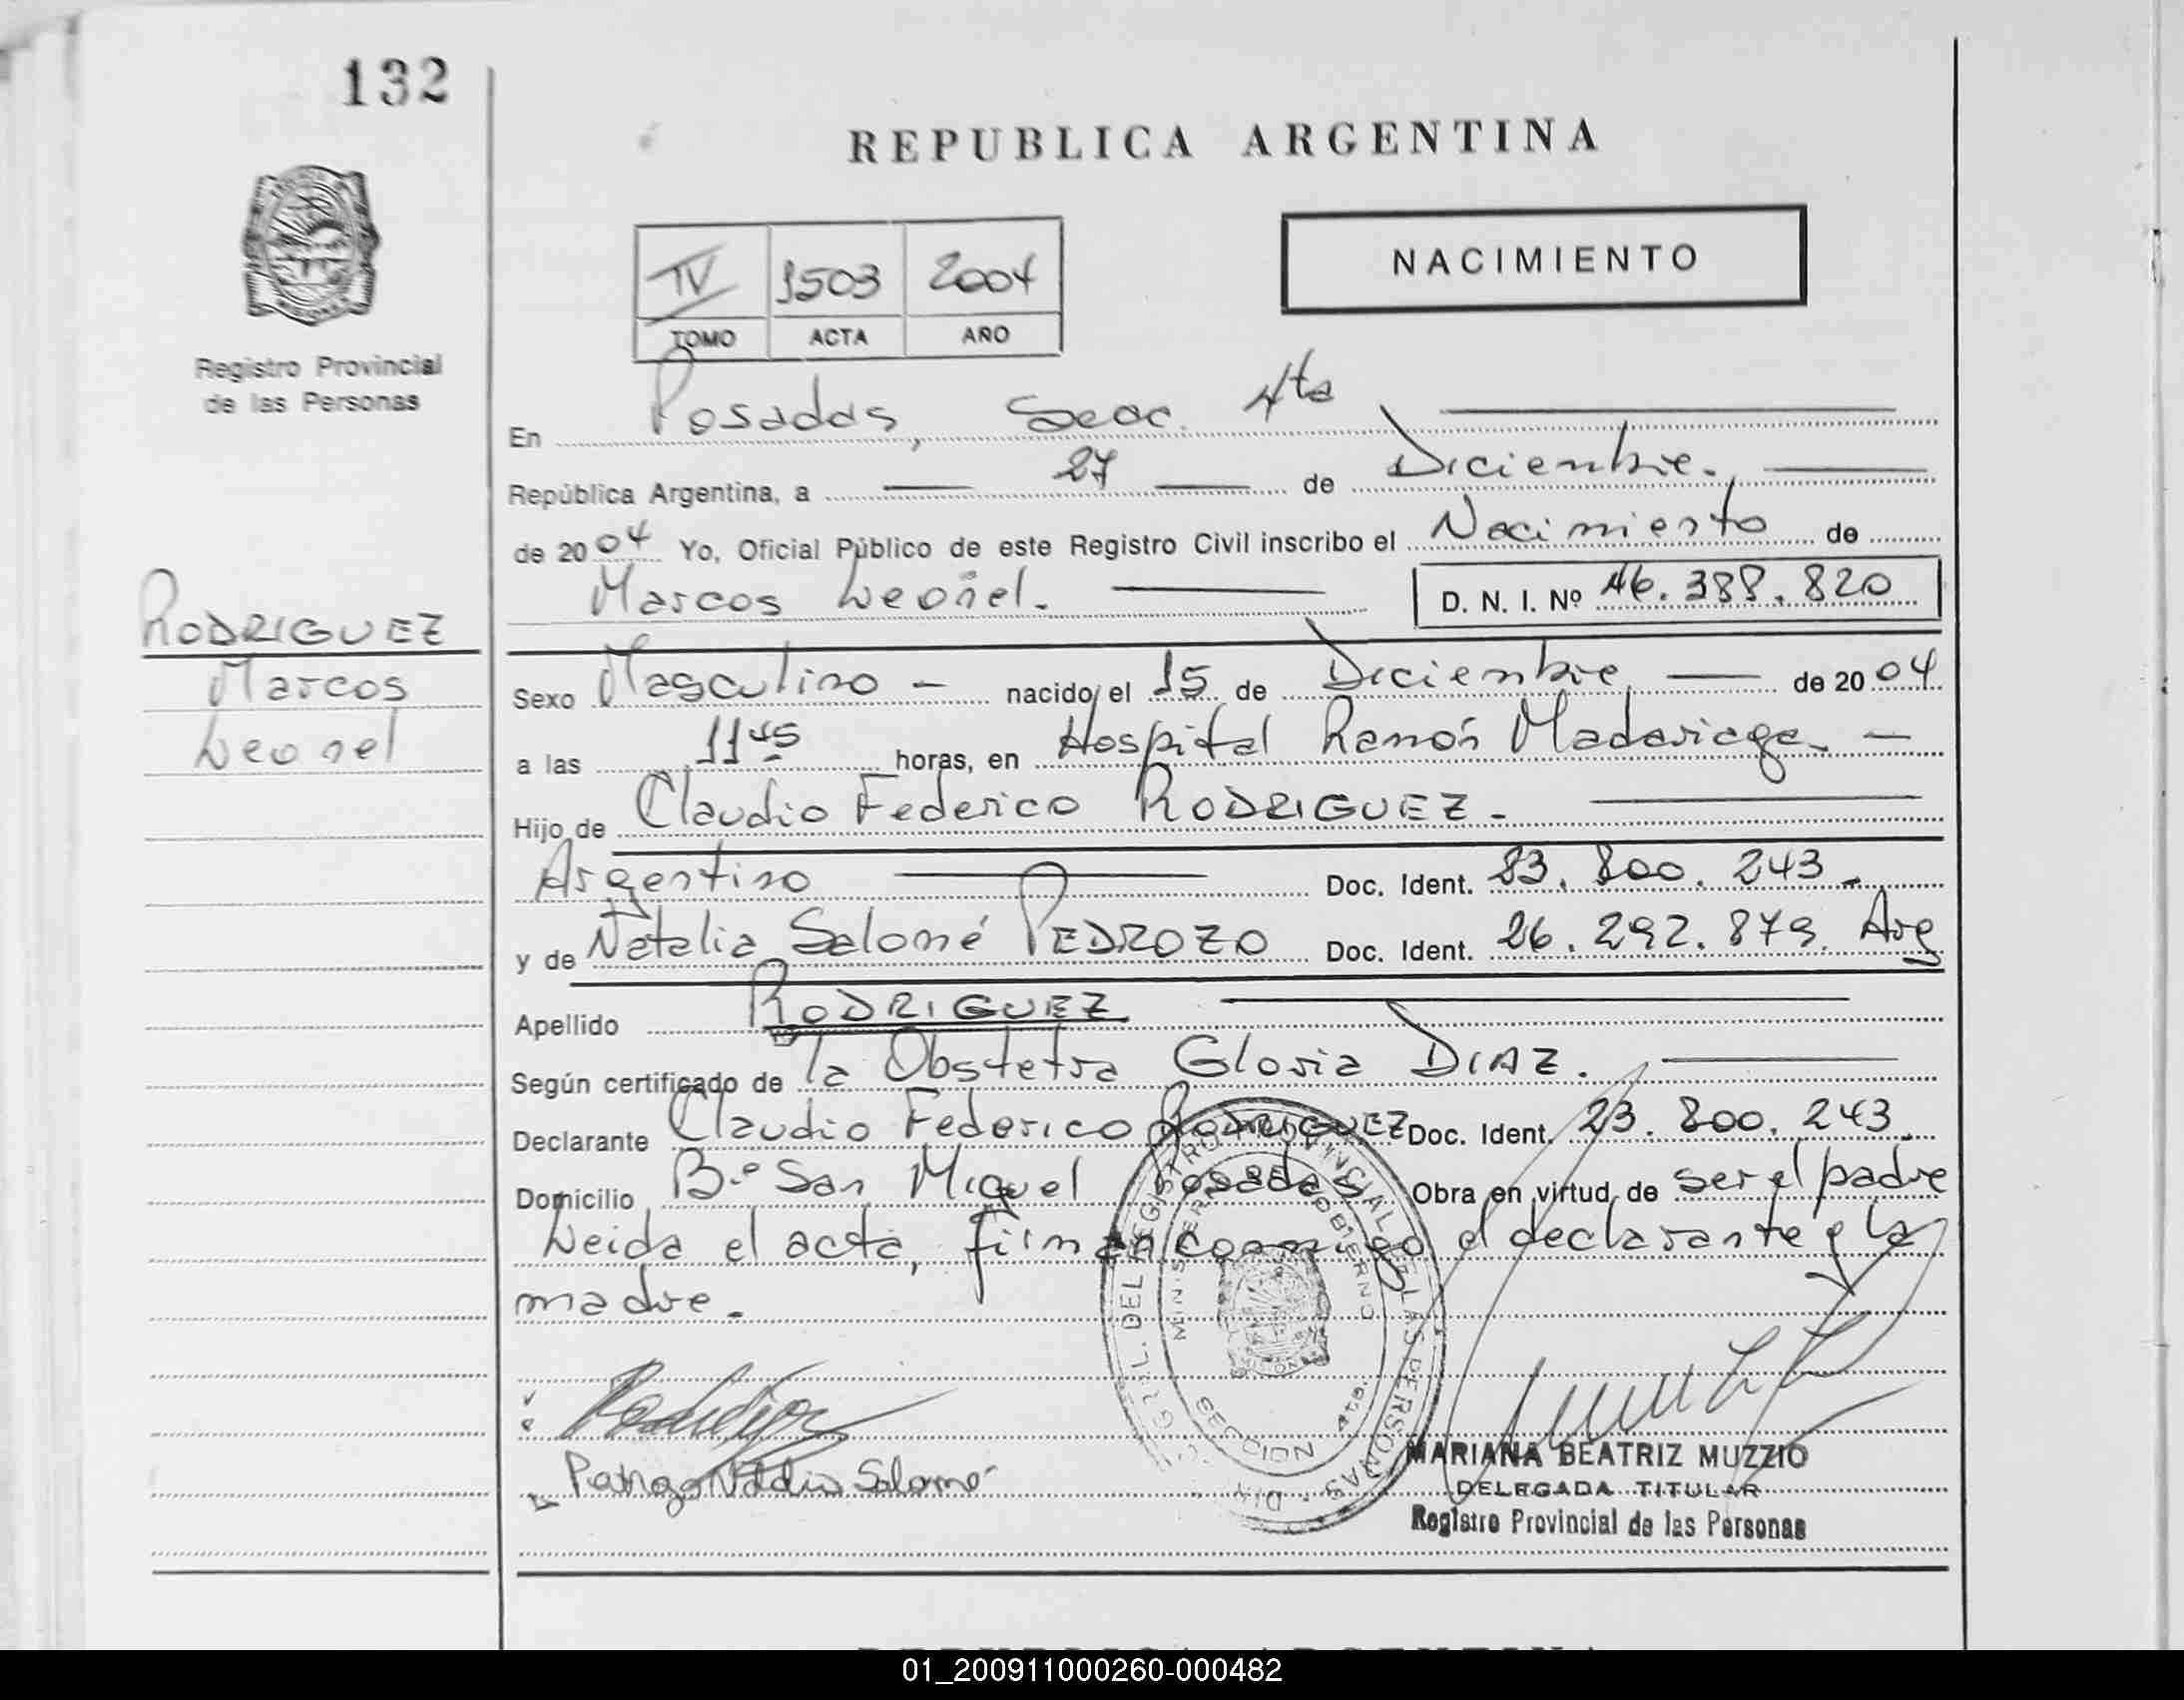 132
REPUBLICA ARGENTINA
NACIMIENTO
IV 1503 2004
TOMO ACTA AÑO
Registro Provincial
de las Personas
En Posadas, Secc. 4ta
República Argentina, a 27 de Diciembre.
de 2004 Yo, Oficial Público de este Registro Civil inscribo el Nacimiento de
Marcos Leonel. D. N. I. Nº 46.388.820
RODRIGUEZ
Marcos
Leonel
Sexo Masculino - nacido el 15 de Diciembre de 2004
a las 11 45 horas, en Hospital Ramón Madariaga. -
Hijo de Claudio Federico RODRIGUEZ -
Argentino Doc. Ident. 23.800.243.-
y de Natalia Salomé PEDROZO Doc. Ident. 26.292.879. Arg
Apellido RODRIGUEZ
Según certificado de la Obstetra Gloria DIAZ.
Declarante Claudio Federico RODRIGUEZ Doc. Ident. 23.800.243.
Domicilio Bº San Miguel Posadas Obra en virtud de ser el padre
Leida el acta, firman conmigo el declarante y la
madre.-
DIR. GRAL. DEL REGISTRO PROVINCIAL DE LAS PERSONAS
MINISTERIO DE GOBIERNO
SECCION 4ta.
Salomé
MARIANA BEATRIZ MUZZIO
DELEGADA TITULAR
Registro Provincial de las Personas
01_200911000260-000482